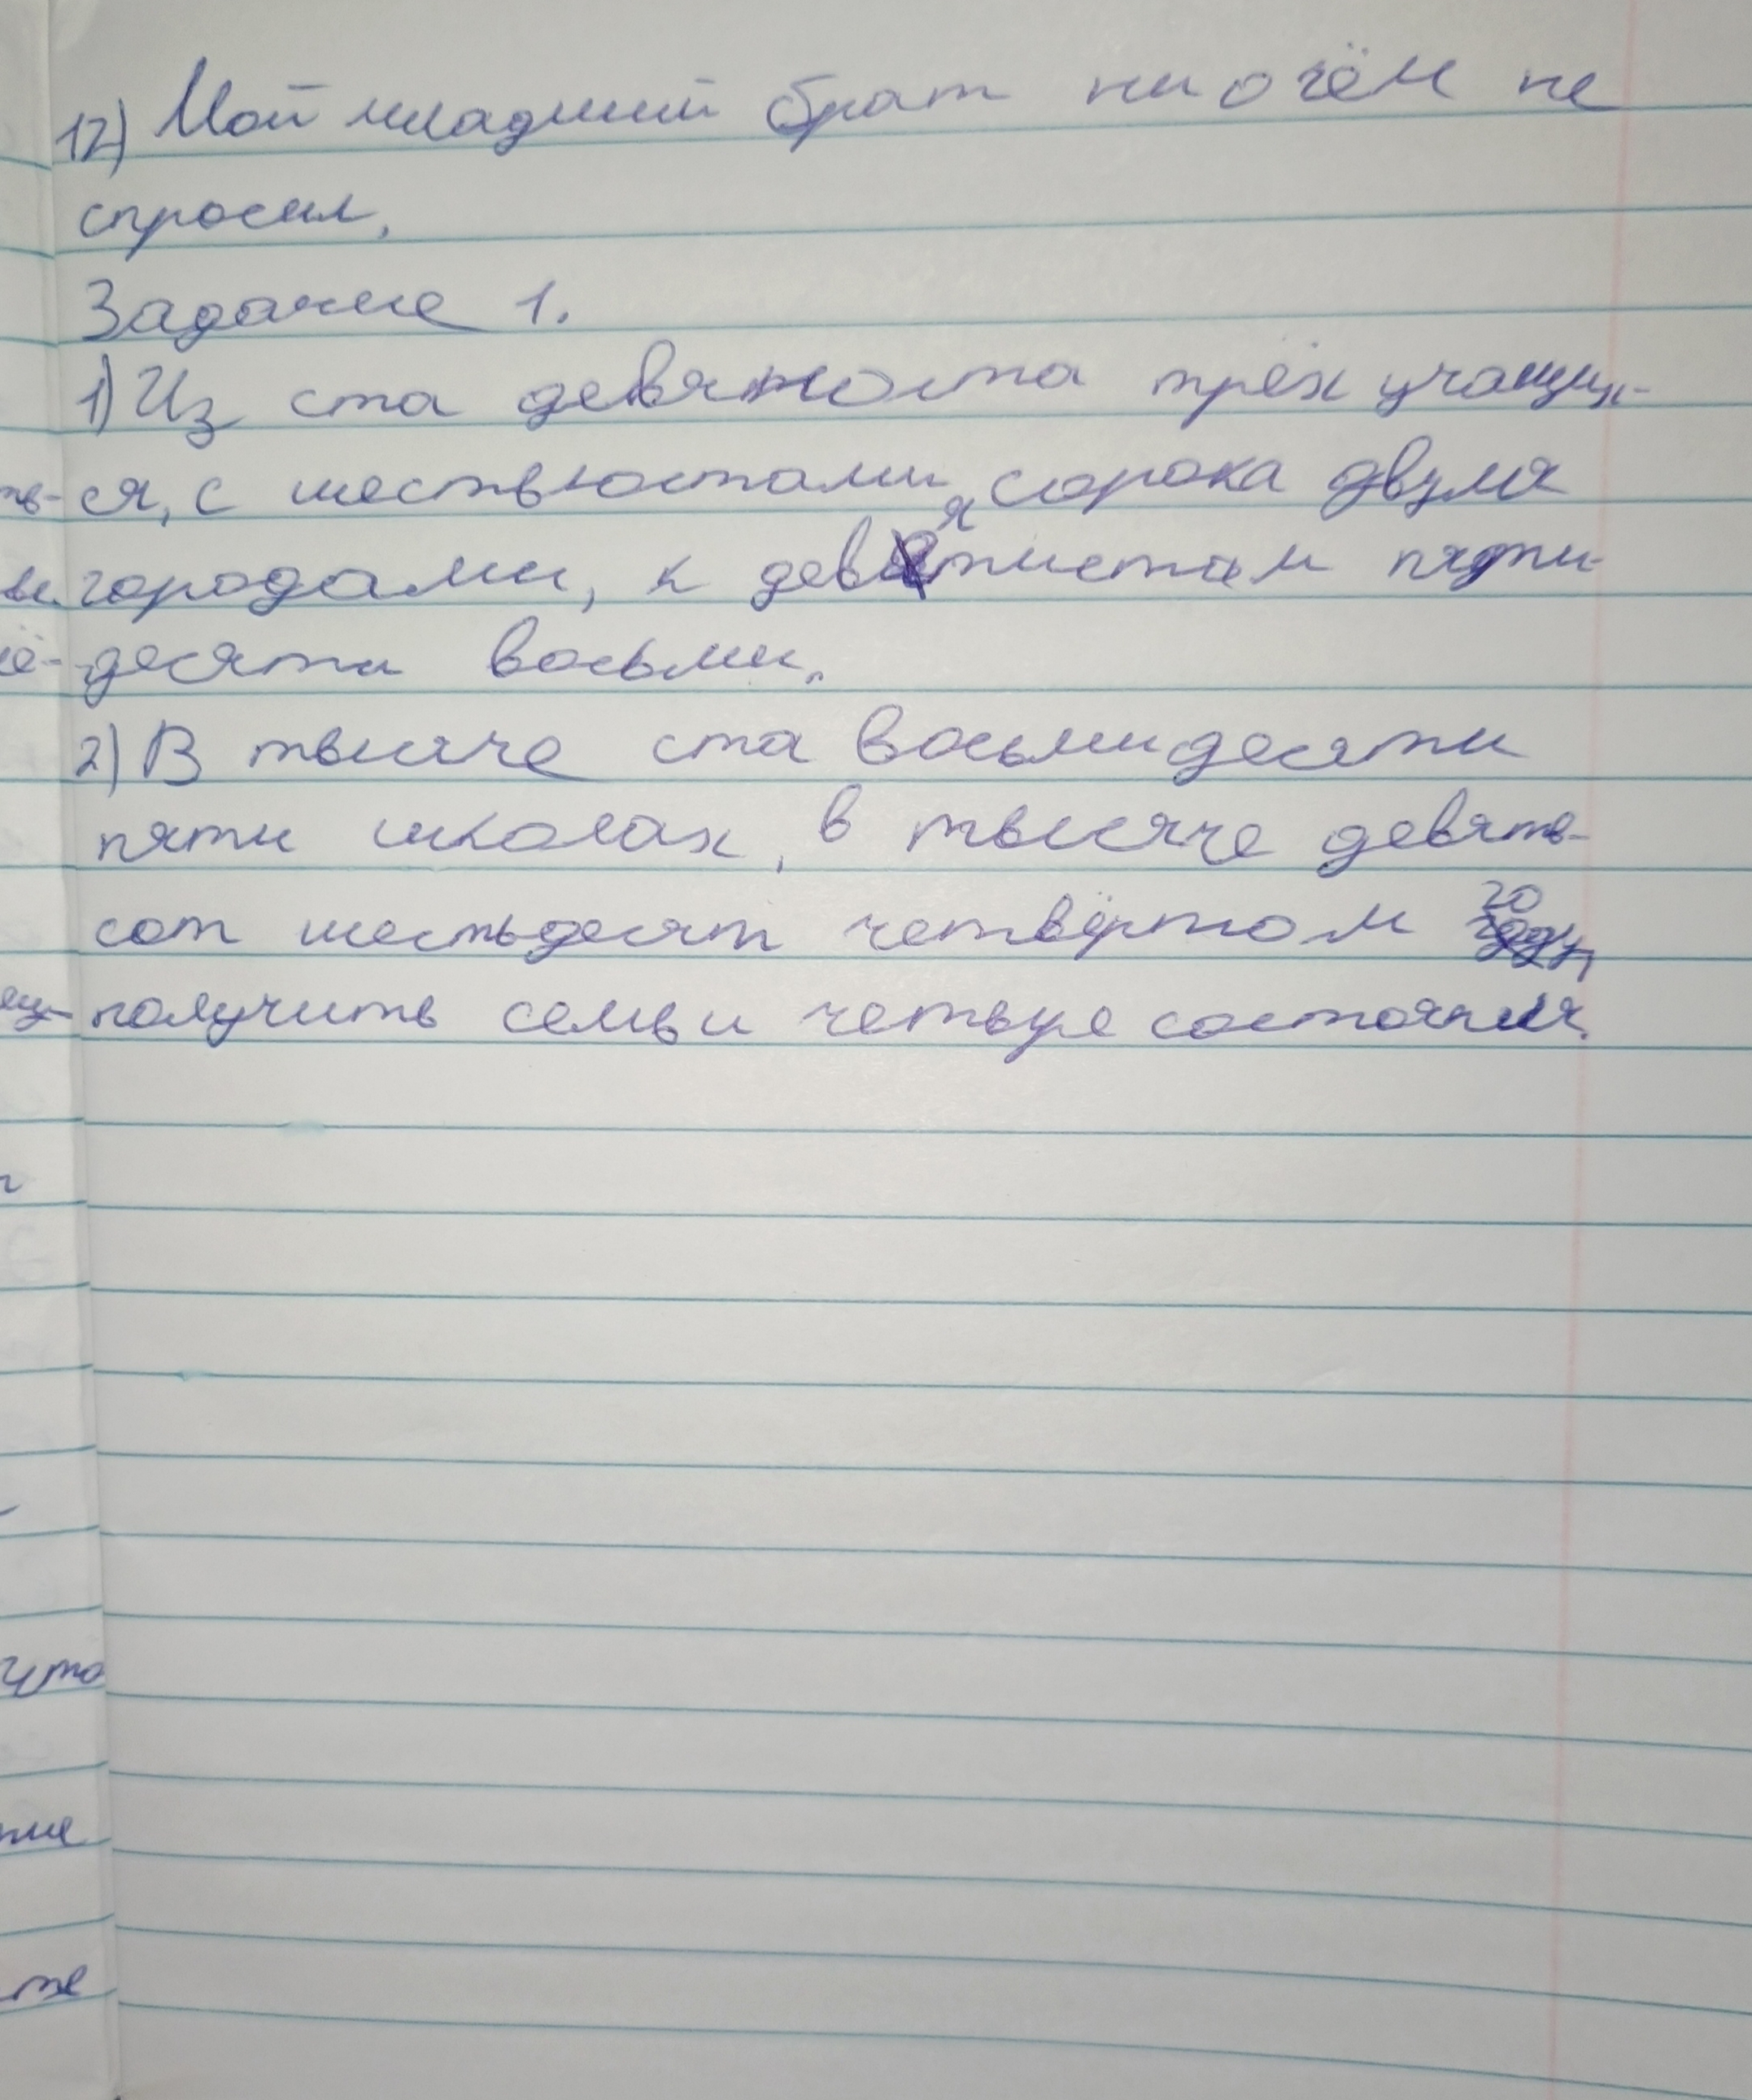 12) Мой младший брат ни о чём не
спросил.
Задание 1.
1) Из ста девяноста трёх учащих-
ся, с шестьюстами сорока двумя
городами, к девятистам пяти-
десяти восьми.
2) В тысяче ста восьмидесяти
пяти школах, в тысяче девять-
сот шестьдесят четвёртом го
ду,
получить семь и четыре состояния.
что